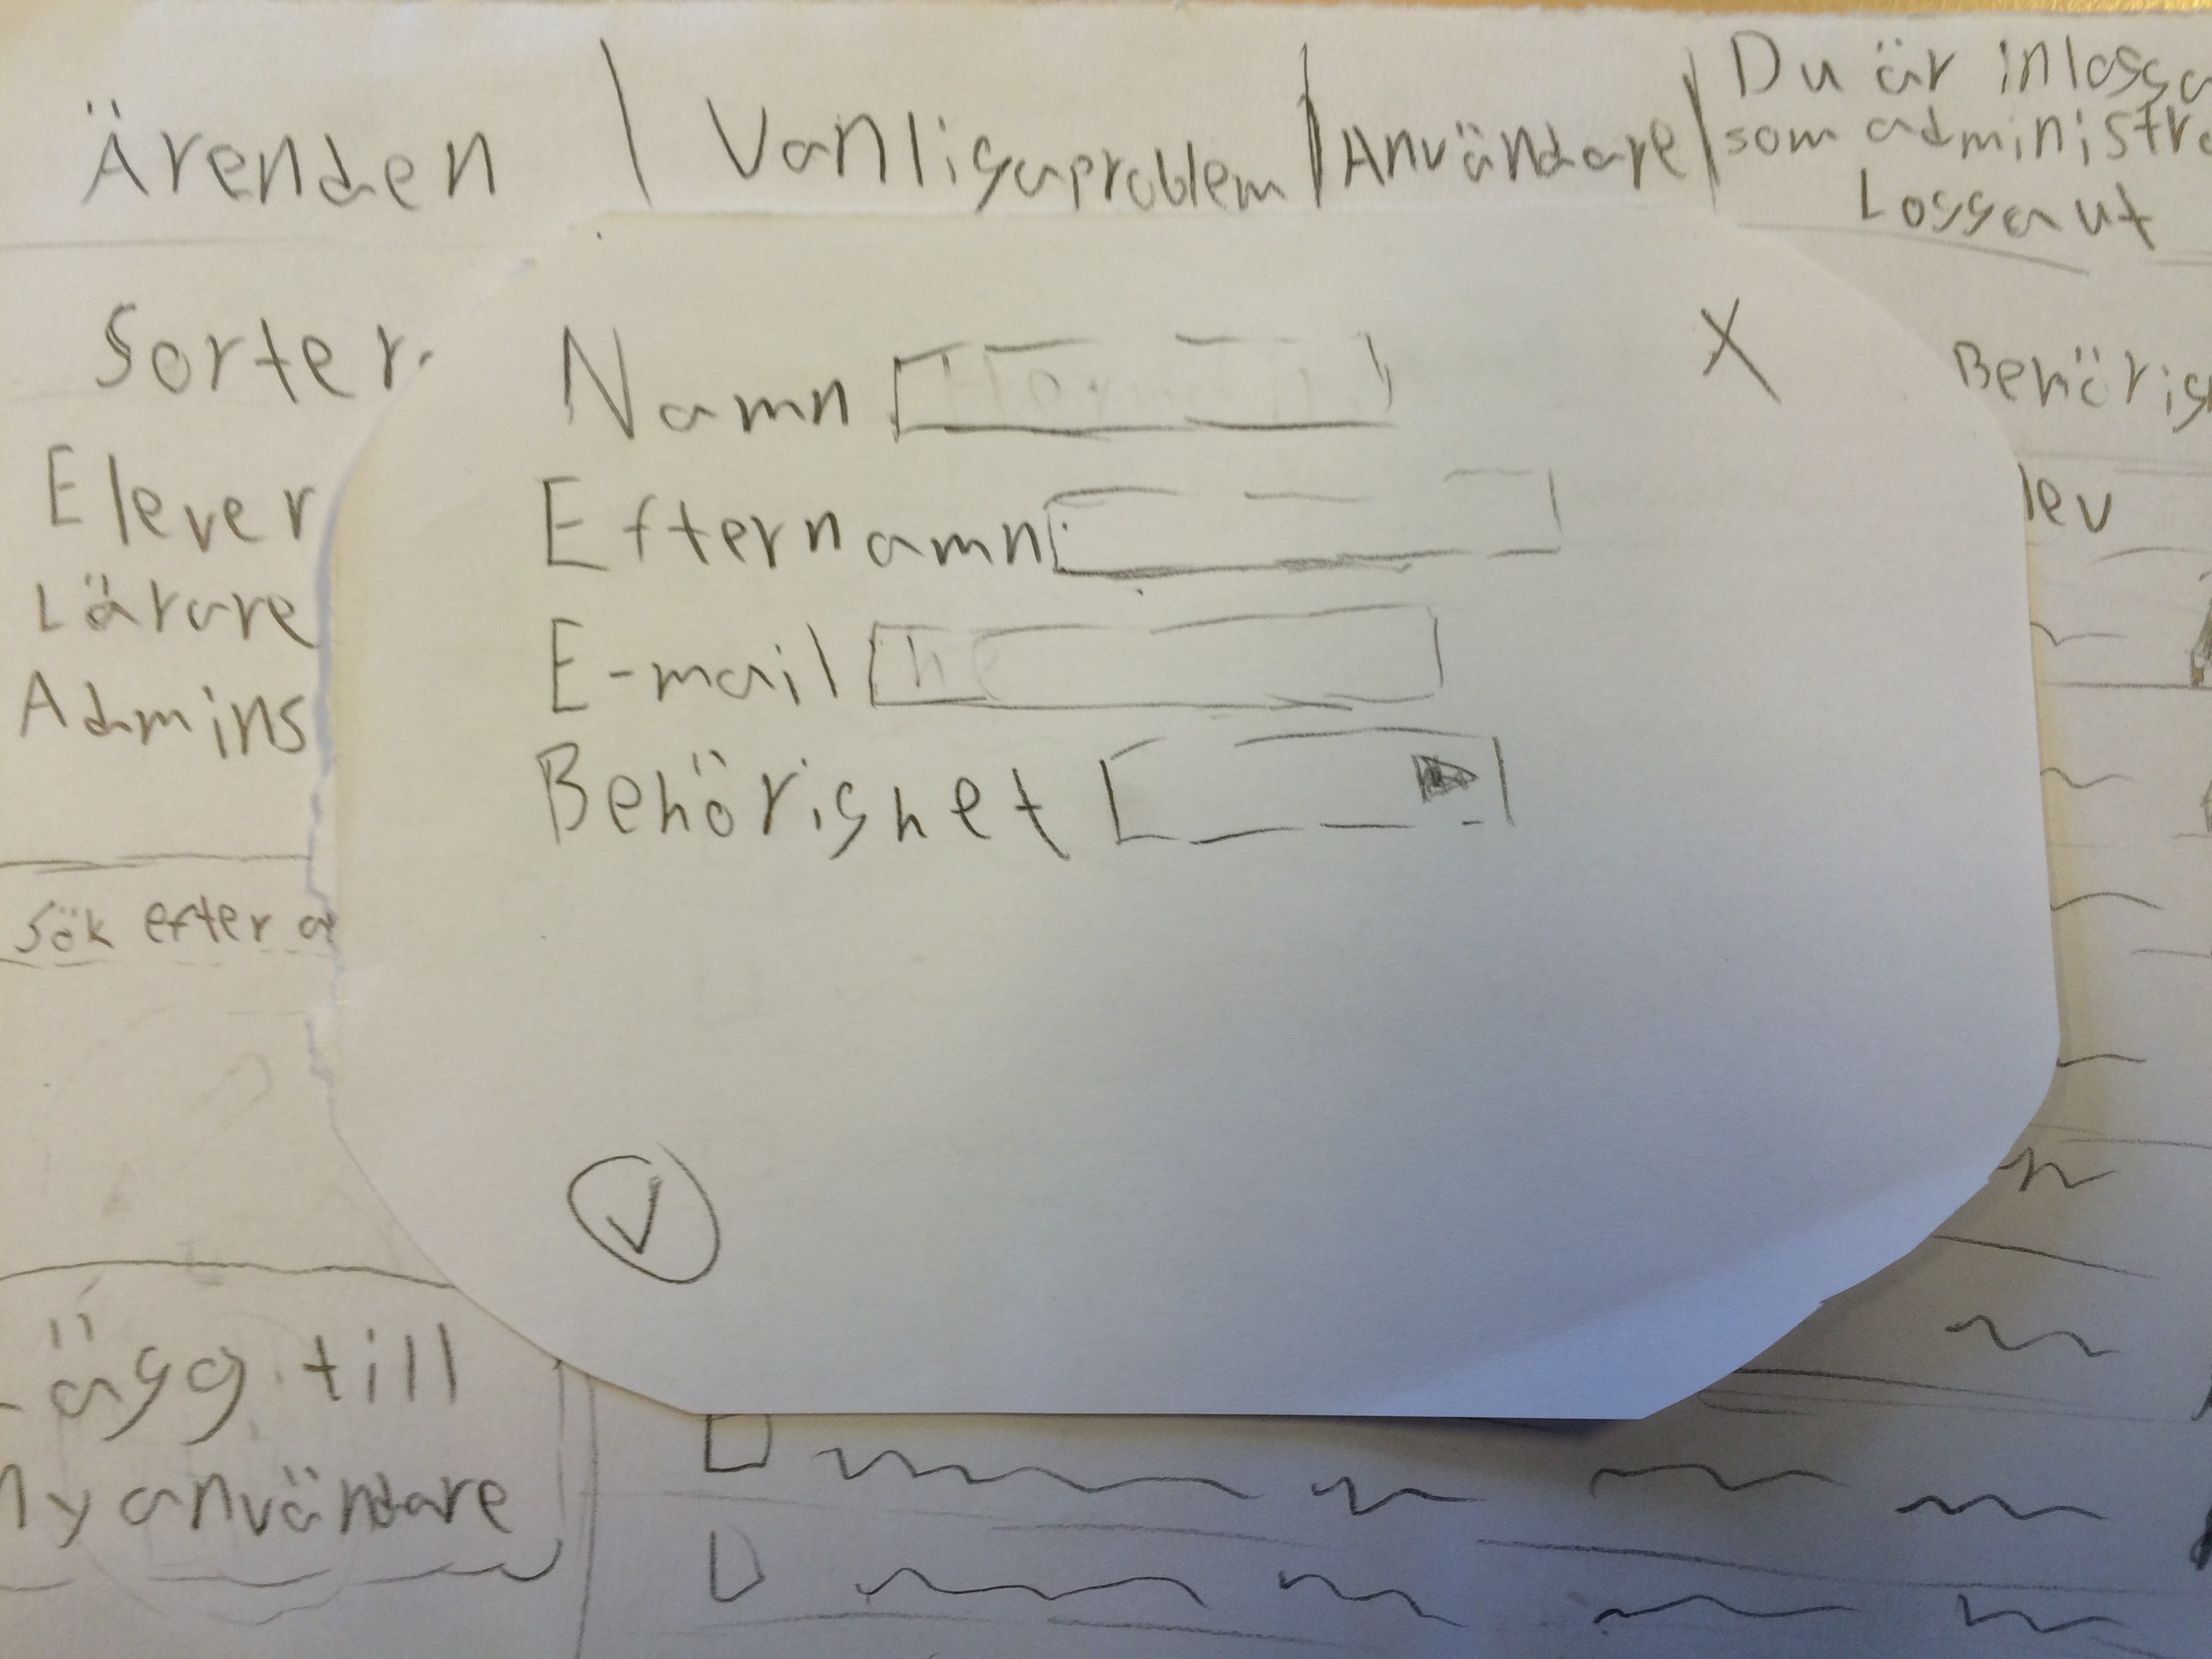 Ärenden | Vanligaproblem | Användare |
Du är inlogga
som administra
Logga ut
Sorter
Elever
Lärare
Admins
Sök efter a
Lägg till
ny användare
Namn
X
Efternamn
E-mail he
Behörighet
Behörig
lev